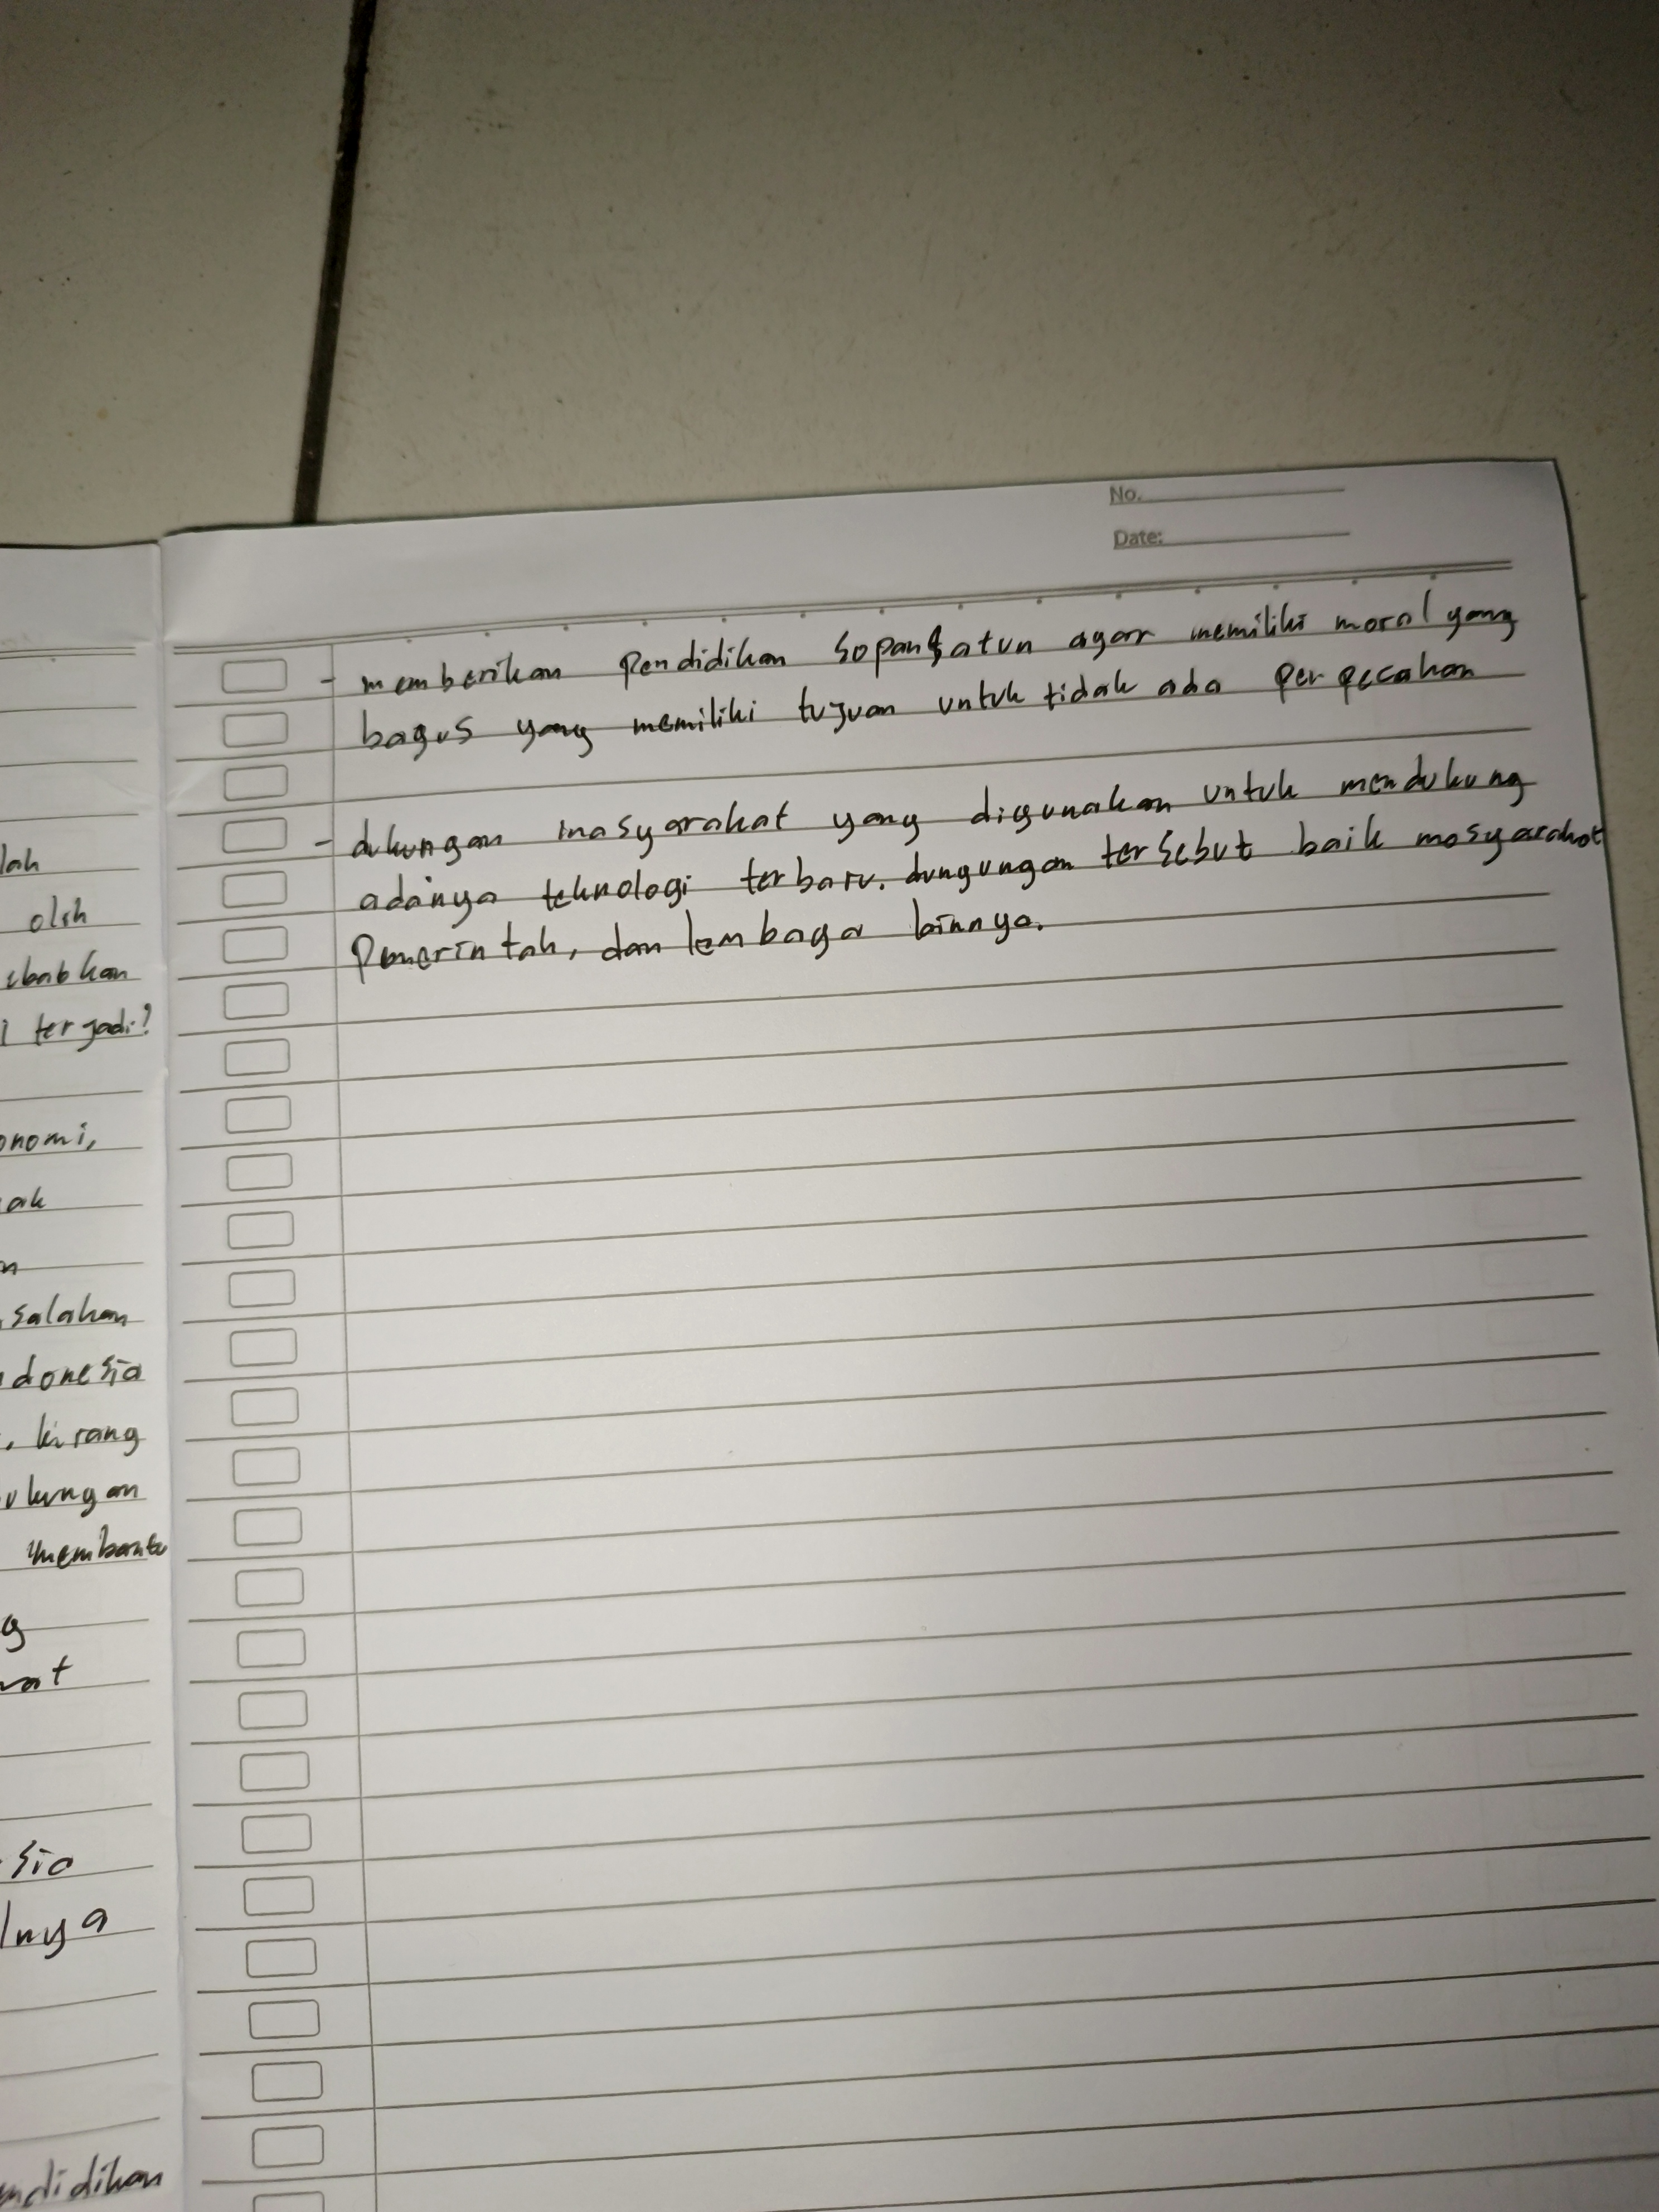 lah
olih
ebabkan
i terjadi?
onomi,
ak
n
salahan
donesia
, kurang
ukungan
membantu
g
wat
sia
lnya
ndidikan
No.
Date:
- memberikan Pendidikan Sopan Satun agar memiliki moral yang
bagus yang memiliki tujuan untuk tidak ada perpecahan
- dukungan masyarakat yang digunakan untuk mendukung
adanya teknologi terbaru. dungungan tersebut baik masyarakat
Pemerintah, dan lembaga lainnya.